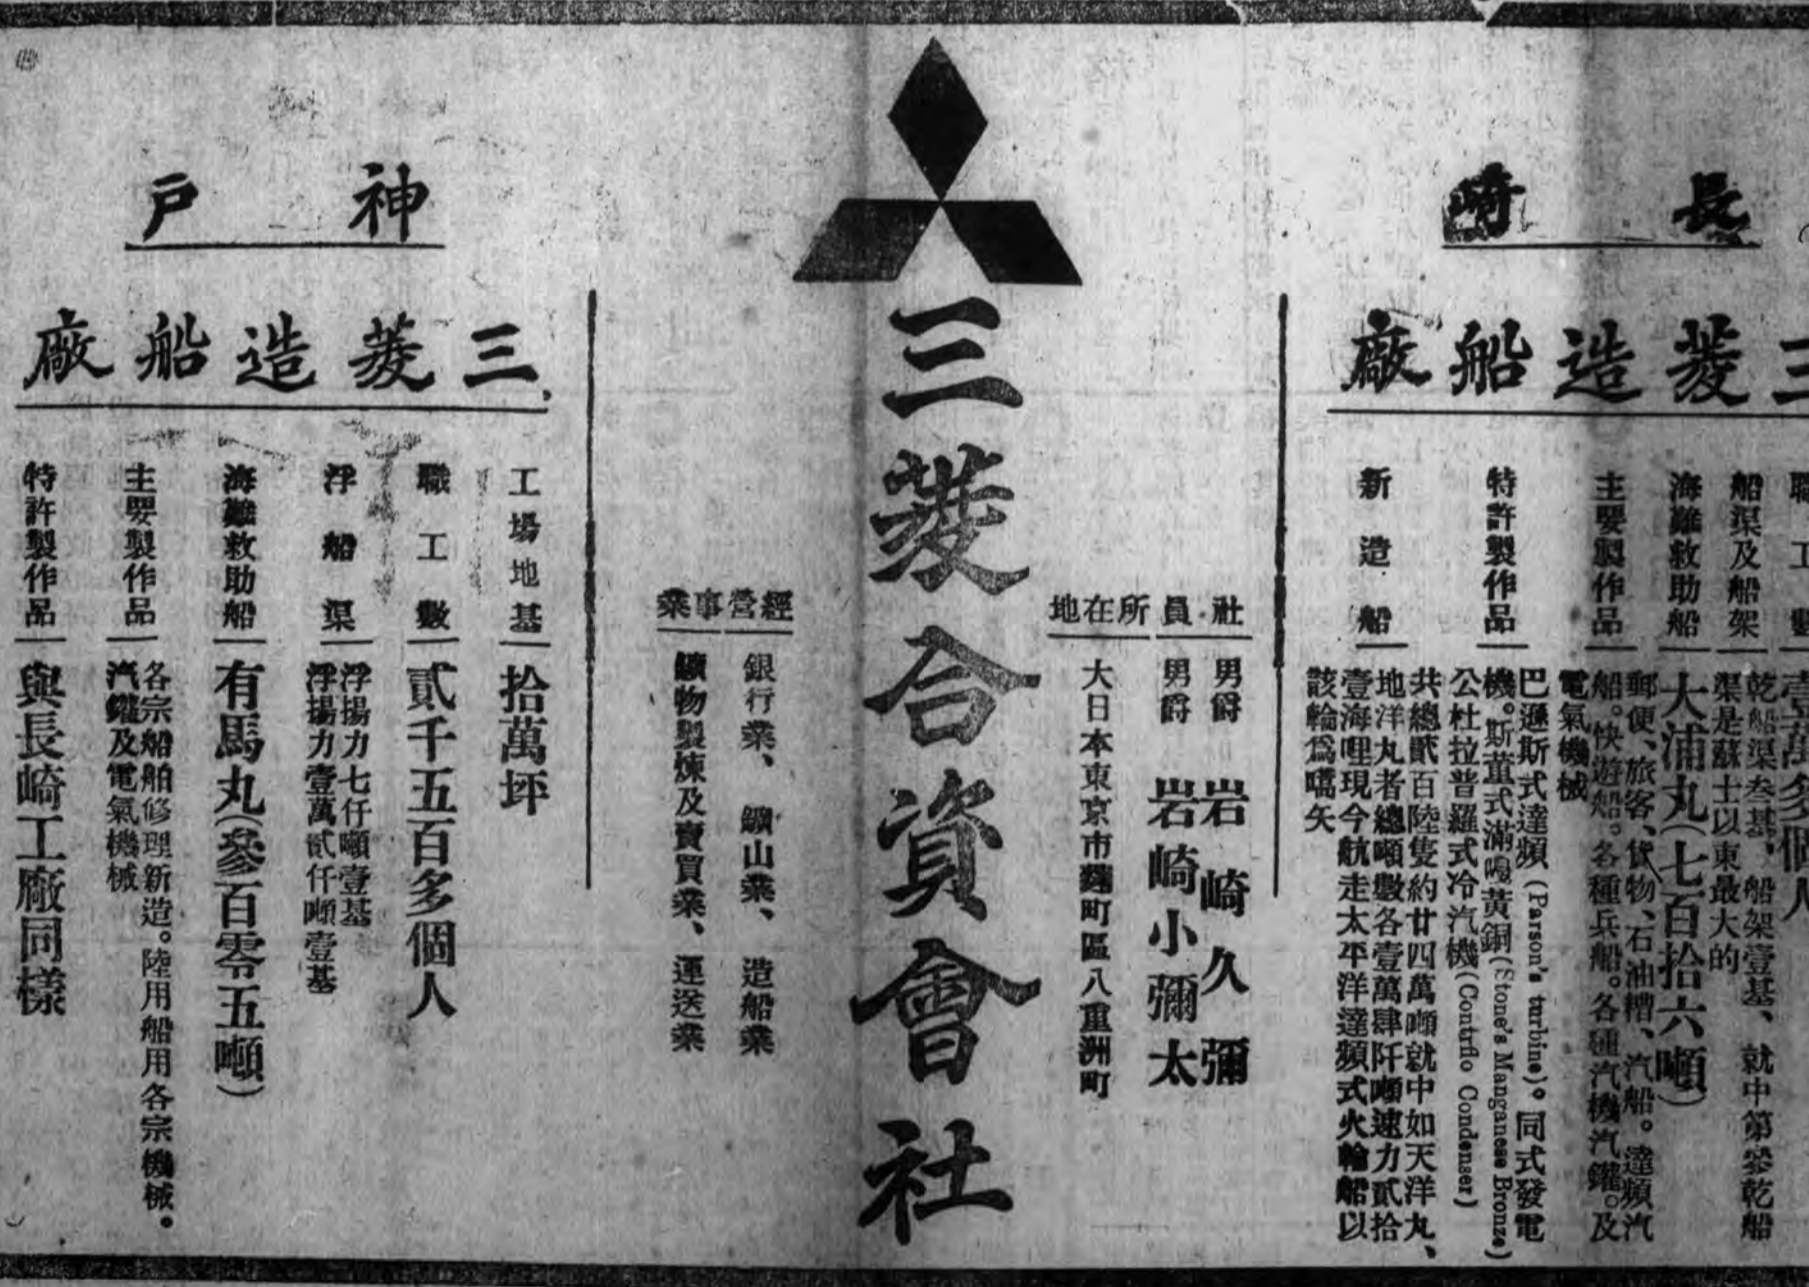 長崎
三菱造船廠
職工數
壹萬多個人
船渠及船架
乾船渠叁基、船架壹基、就中第叄乾船
渠是蘇士以東最大的
海難救助船
大浦丸(七百拾六噸)
主要製作品
郵便、旅客、貨物、石油糟、汽船。達頻汽
船。快遊船。各種兵船。各種汽機汽鑵。及
電氣機械
特許製作品
巴遜斯式達頻(Parson's turbine)。同式發電
機。斯董式滿嘬黃銅(Stone's Manganese Bronze)
公杜拉普羅式冷汽機(Contraflo Condenser)
新造船
共總貳百陸隻約廿四萬噸就中如天洋丸、
地洋丸者總噸數各壹萬肆阡噸速力貳拾
壹海哩現今航走太平洋達頻式火輪船以
該輪爲嚆矢
三菱合資會社
社員
男爵 岩崎久彌
男爵 岩崎小彌太
所在地
大日本東京市麴町區八重洲町
經營事業
銀行業、鑛山業、造船業
鑛物製煉及賣買業、運送業
神戶
三菱造船廠
工場地基
拾萬坪
職工數
貳千五百多個人
浮船渠
浮揚力七仟噸壹基
浮揚力壹萬貳仟噸壹基
海難救助船
有馬丸(參百零五噸)
主要製作品
各宗船舶修理新造。陸用船用各宗機械。
汽鑵及電氣機械
特許製作品
與長崎工廠同樣